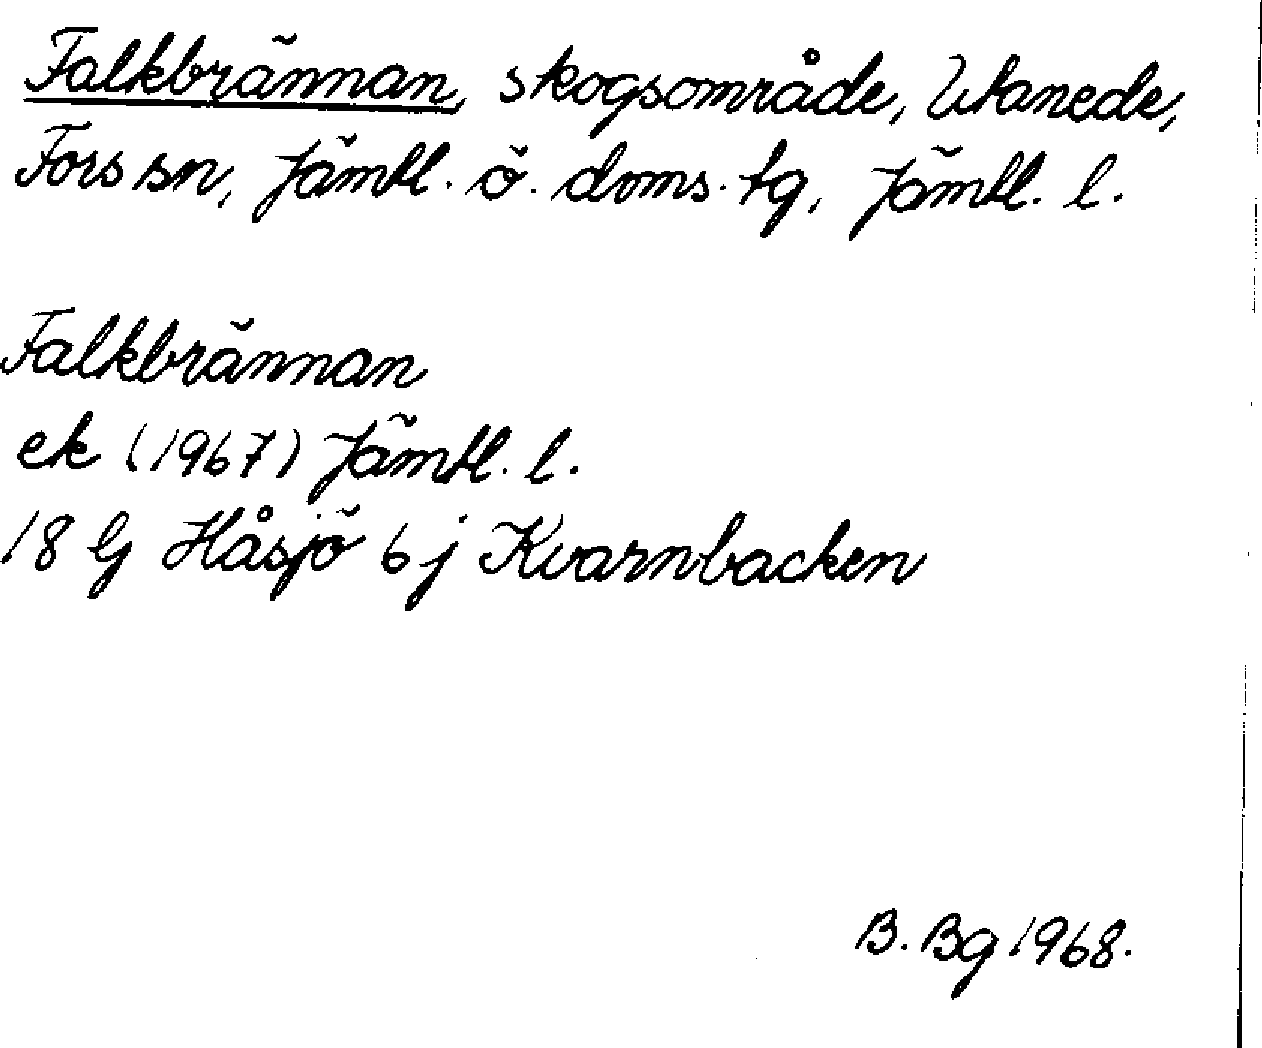 Falkbrännan, skogsområde, Utanede,
Fors sn, Jämtl. ö. doms. tg, Jämtl. l.
Falkbrännan
ek (1967) Jämtl. l.
18 G Håsjö 6 j Kvarnbacken
B. Bg 1968.